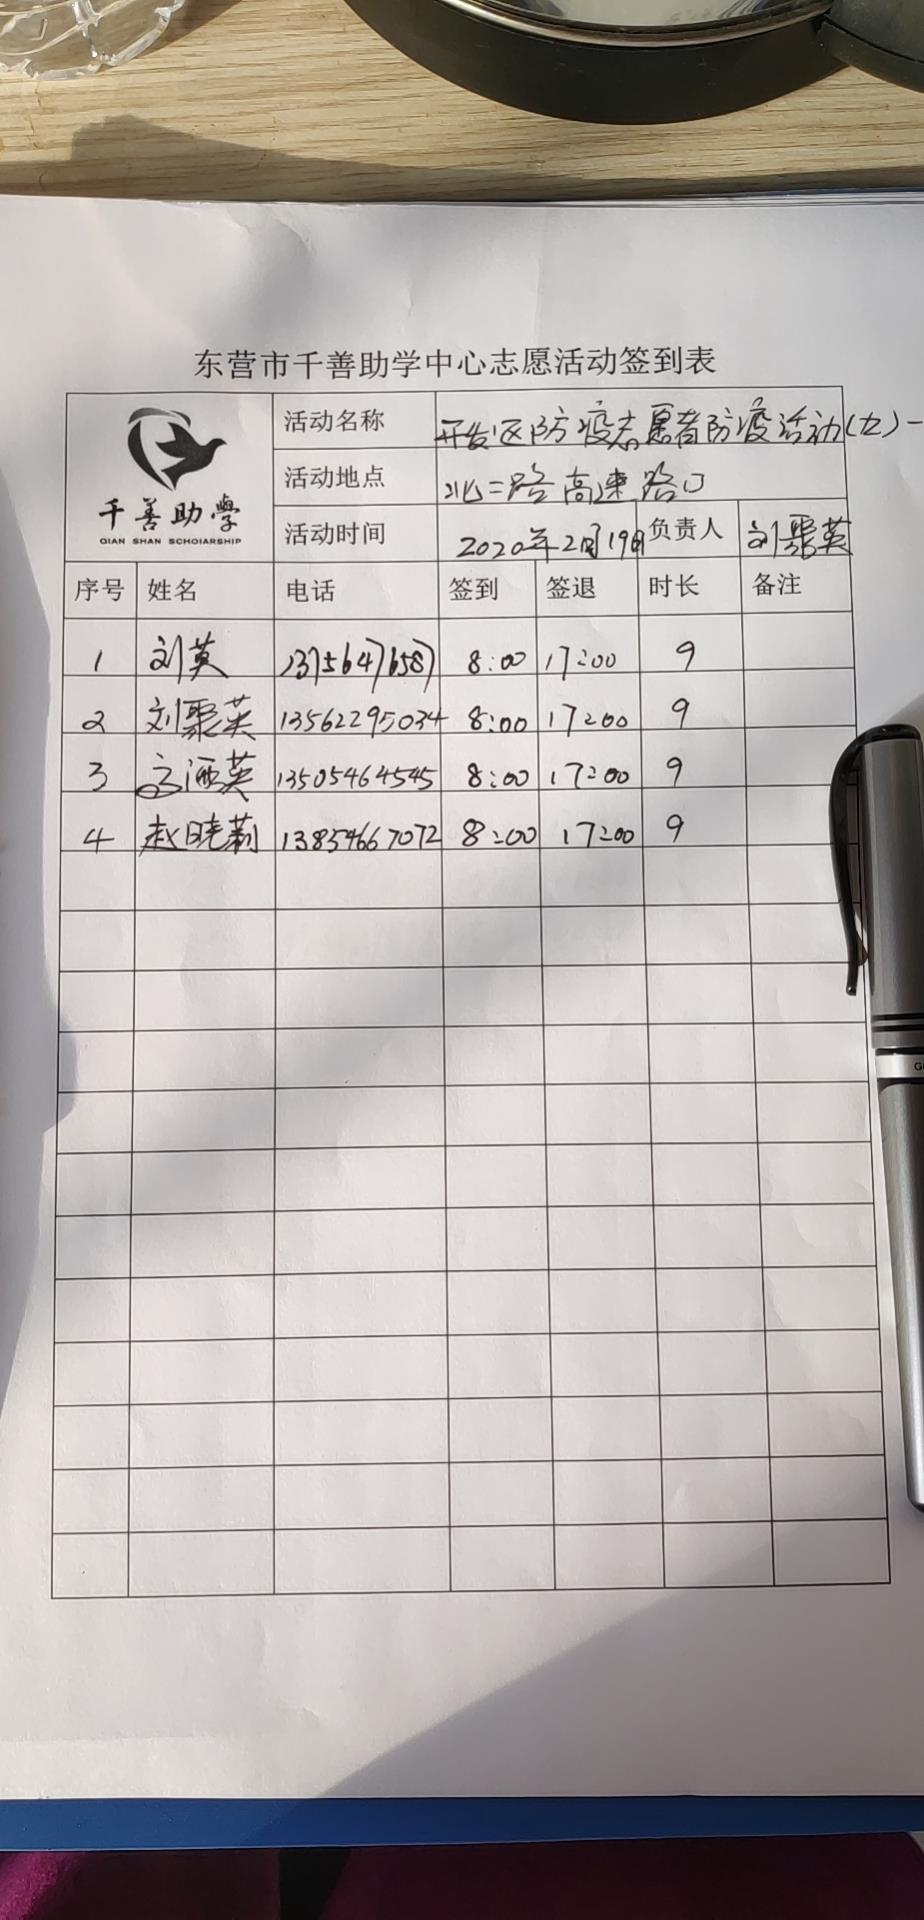 东营市千善助学中心志愿活动签到表
千善助學
QIAN SHAN SCHOlARSHIP
活动名称 开发区防疫志愿者防疫活动(九)一
活动地点 北二路高速路口
活动时间 2020年2月19日 负责人 刘聚英
序号 姓名 电话 签到 签退 时长 备注
1 刘英 13756476587 8:00 17:00 9
2 刘聚英 13562295034 8:00 17:00 9
3 英 13505464545 8:00 17:00 9
4 赵晓莉 13854667072 8:00 17:00 9